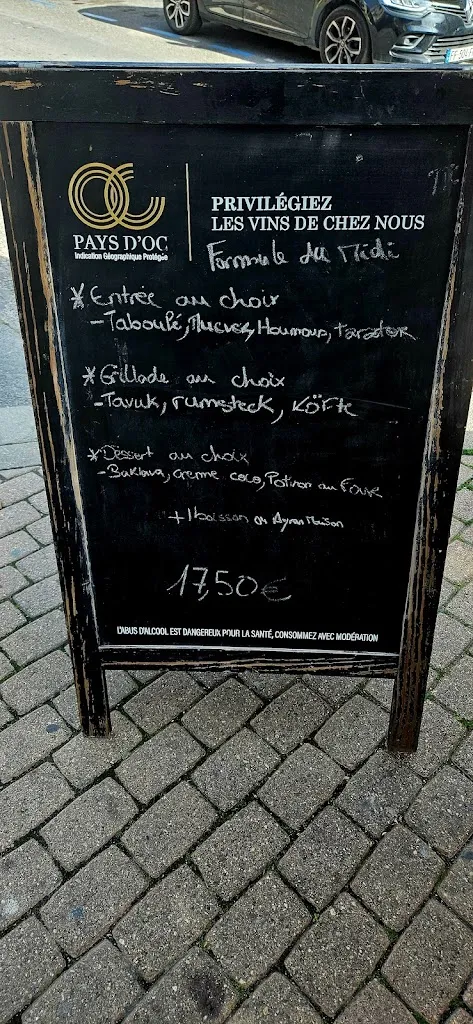 PAYS D'OC
Indication Géographique Protégée
PRIVILÉGIEZ
LES VINS DE CHEZ NOUS
Formule du Midi
* Entrée au choix
- Taboulé, Mucver, Houmous, tarator
* Grillade au choix
- Tavuk, rumsteck, KöFte
* Dessert au choix
- Baklava, creme coco, Potiron au Four
+ 1 boisson ou Ayran Maison
17,50€
L'ABUS D'ALCOOL EST DANGEREUX POUR LA SANTÉ, CONSOMMEZ AVEC MODÉRATION